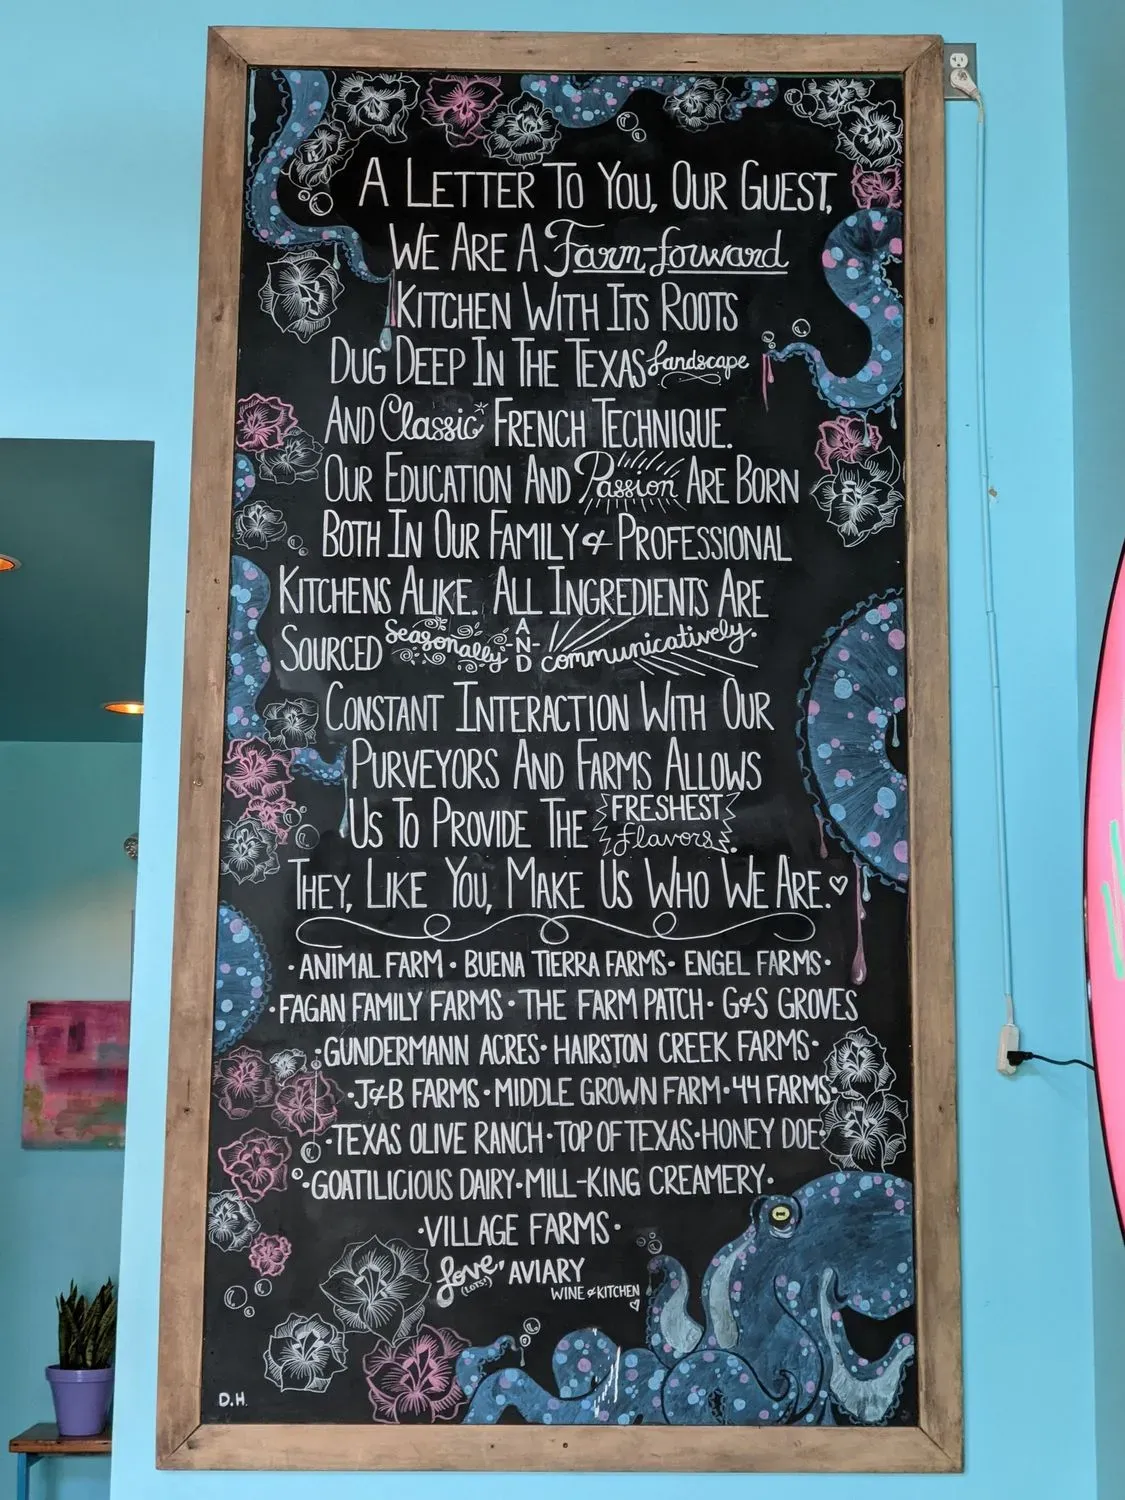 A LETTER TO YOU, OUR GUEST,
WE ARE A Farm-forward
KITCHEN WITH ITS ROOTS
DUG DEEP IN THE TEXAS Landscape
AND Classic FRENCH TECHNIQUE.
OUR EDUCATION AND Passion ARE BORN
BOTH IN OUR FAMILY & PROFESSIONAL
KITCHENS ALIKE. ALL INGREDIENTS ARE
SOURCED Seasonally -AND- communicatively.
CONSTANT INTERACTION WITH OUR
PURVEYORS AND FARMS ALLOWS
US TO PROVIDE THE FRESHEST flavors.
THEY, LIKE YOU, MAKE US WHO WE ARE.♡
• ANIMAL FARM • BUENA TIERRA FARMS • ENGEL FARMS •
• FAGAN FAMILY FARMS • THE FARM PATCH • G&S GROVES
• GUNDERMANN ACRES • HAIRSTON CREEK FARMS •
• J&B FARMS • MIDDLE GROWN FARM • 44 FARMS •
• TEXAS OLIVE RANCH • TOP OF TEXAS • HONEY DOE •
• GOATILICIOUS DAIRY • MILL-KING CREAMERY •
• VILLAGE FARMS •
Love, (LOTS!) AVIARY
WINE & KITCHEN
♡
D.H.